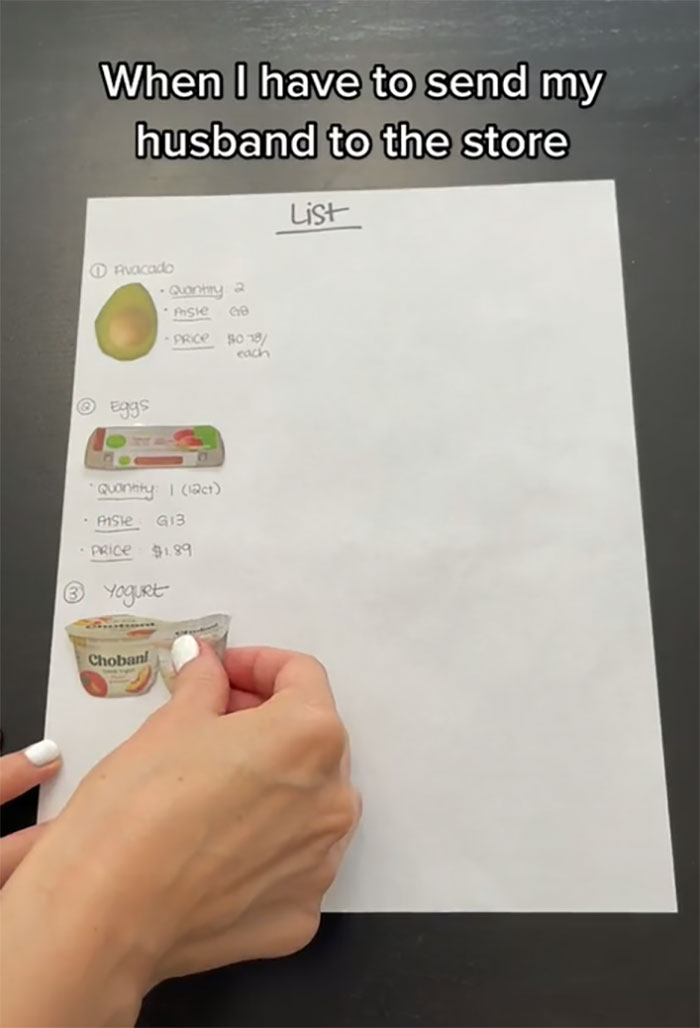 When I have to send my
husband to the store
List
① Avacado
· Quantity: 2
· Aisle G8
· Price $0.78/
each
② Eggs
· Quantity: 1 (12ct)
· Aisle: G13
· Price: $1.89
③ Yogurt
Chobani